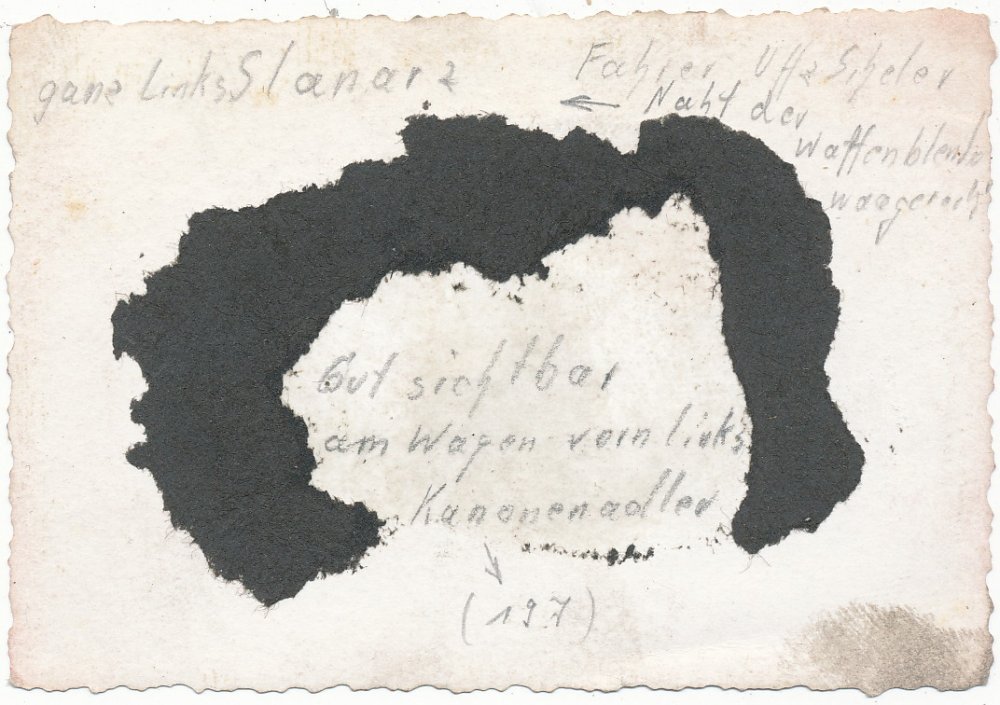 ganz links Slanarz
Fahrer Uffz Scheler
← Naht der
Waffenblende
waagerecht
Gut sichtbar
am Wagen vorn links
Kanonenadler
(197)